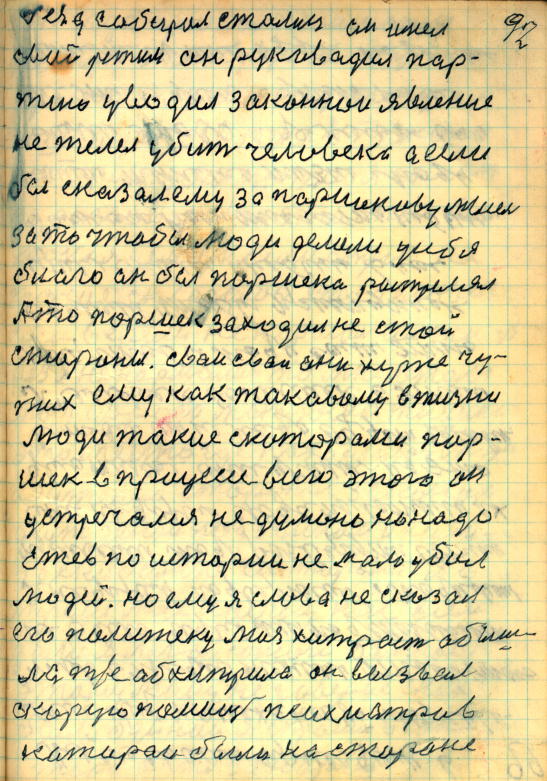 92
сабирал сталин он имел
свой режим он руководил пар-
тию уводил законнои явление
не желел убит человека а если
бы сказал ему за паршекову
за то чтобы люди делали убя
благо он бы паршека растрелял
А то поршек заходил не с той
стороны. сваи сваи они хуже чу-
жих ему как таковому в жизни
люди такие скоторами пор-
шек в процеси всего этого он
устречался не думоно но надо
по истории не мало убил
людей. но ему я слова не сказал
его политеку моя хитраст
ла же абхитрила он вызвал
скорую помощ психиатров
каторăи были на стороне